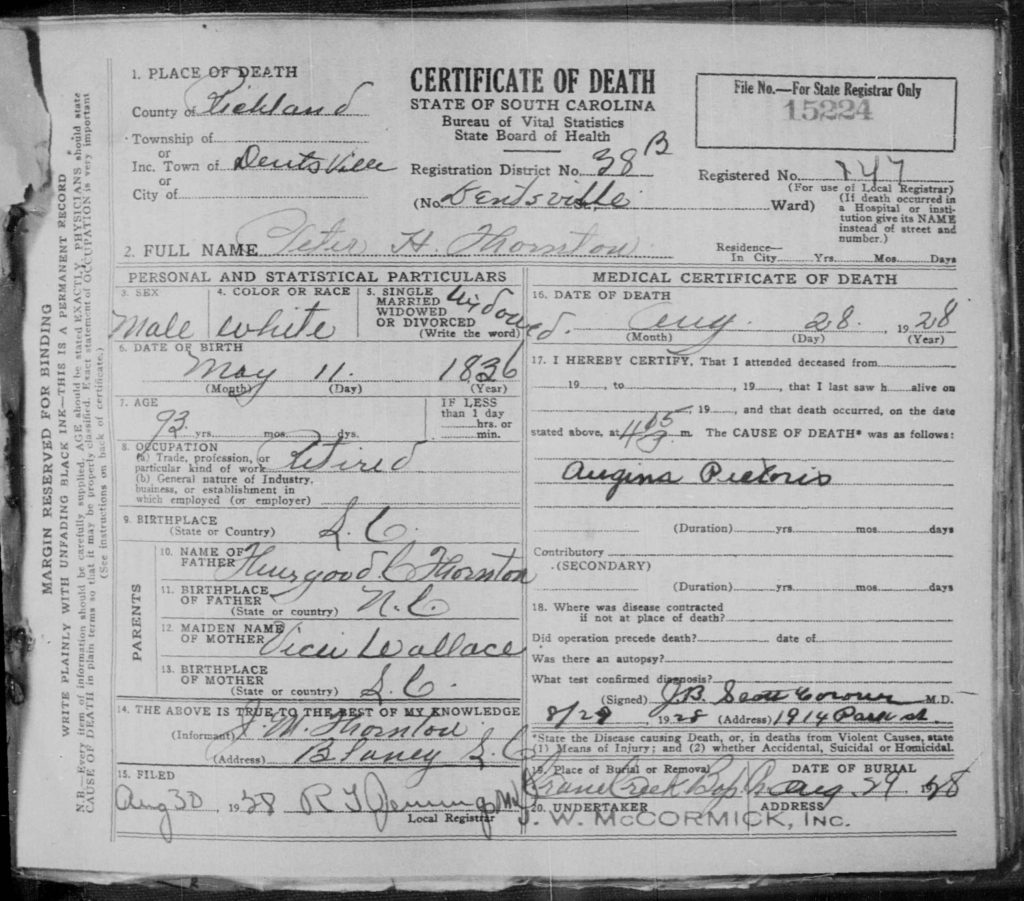 MARGIN RESERVED FOR BINDING
WRITE PLAINLY WITH UNFADING BLACK INK—THIS IS A PERMANENT RECORD
N.B.—Every item of information should be carefully supplied, AGE should be stated EXACTLY. PHYSICIANS should state
CAUSE OF DEATH in plain terms so that it may be properly classified. Exact statement of OCCUPATION is very important
(See instructions on back of certificate.)
1. PLACE OF DEATH
County of Richland
Township of
or
Inc. Town of Dentsville
or
City of
CERTIFICATE OF DEATH
STATE OF SOUTH CAROLINA
Bureau of Vital Statistics
State Board of Health
Registration District No. 38 B
(No. Dentsville Ward)
File No.—For State Registrar Only
15224
Registered No. 147
(For use of Local Registrar)
(If death occurred in
a Hospital or insti-
tution give its NAME
instead of street and
number.)
2. FULL NAME Peter H. Thornton
Residence—
In City Yrs. Mos. Days
PERSONAL AND STATISTICAL PARTICULARS
3. SEX
Male
4. COLOR OR RACE
White
5. SINGLE
MARRIED
WIDOWED
OR DIVORCED
(Write the word)
Widowed.
6. DATE OF BIRTH
May 11. 1836
(Month) (Day) (Year)
7. AGE
93 yrs. mos. dys.
IF LESS
than 1 day
hrs. or
min.
8. OCCUPATION
(a) Trade, profession, or
particular kind of work Retired
(b) General nature of Industry,
business, or establishment in
which employed (or employer)
9. BIRTHPLACE
(State or Country) S. C.
PARENTS
10. NAME OF
FATHER Thornton
11. BIRTHPLACE
OF FATHER
(State or country) N. C.
12. MAIDEN NAME
OF MOTHER Wallace
13. BIRTHPLACE
OF MOTHER
(State or country) S. C.
14. THE ABOVE IS TRUE TO THE BEST OF MY KNOWLEDGE
(Informant) J. M. Thornton
(Address) Blaney S. C.
15. FILED
Aug 30 1928 R T Jennings
Local Registrar
MEDICAL CERTIFICATE OF DEATH
16. DATE OF DEATH
Aug. 28. 1928
(Month) (Day) (Year)
17. I HEREBY CERTIFY, That I attended deceased from
19 , to 19 , that I last saw h alive on
, 19 , and that death occurred, on the date
stated above, at m. The CAUSE OF DEATH* was as follows:
Angina Pectoris
(Duration) yrs. mos. days
Contributory
(SECONDARY)
(Duration) yrs. mos. days
18. Where was disease contracted
if not at place of death?
Did operation precede death? date of
Was there an autopsy?
What test confirmed diagnosis?
(Signed) J.B. Scott Coroner M.D.
8/29, 1928 (Address) 1914 Park st.
*State the Disease causing Death, or, in deaths from Violent Causes, state
(1) Means of Injury; and (2) whether Accidental, Suicidal or Homicidal.
19. Place of Burial or Removal
Crane Creek Bap
DATE OF BURIAL
Aug. 29 1928
20. UNDERTAKER
ADDRESS
J. W. McCORMICK, INC.